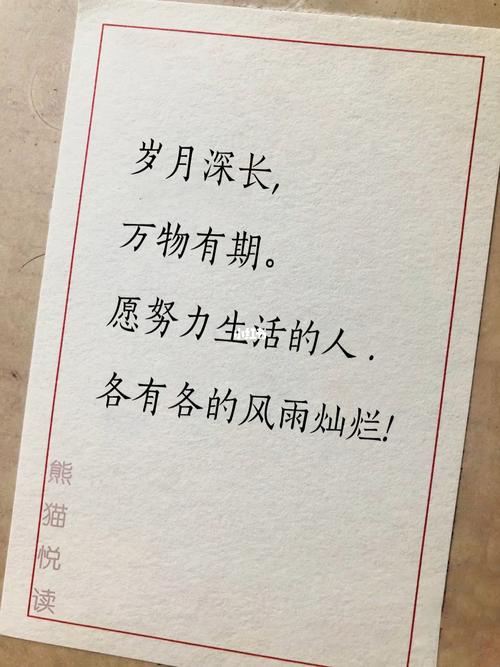 岁月深长,
万物有期。
愿努力生活的人.
各有各的风雨灿烂!
熊猫悦读